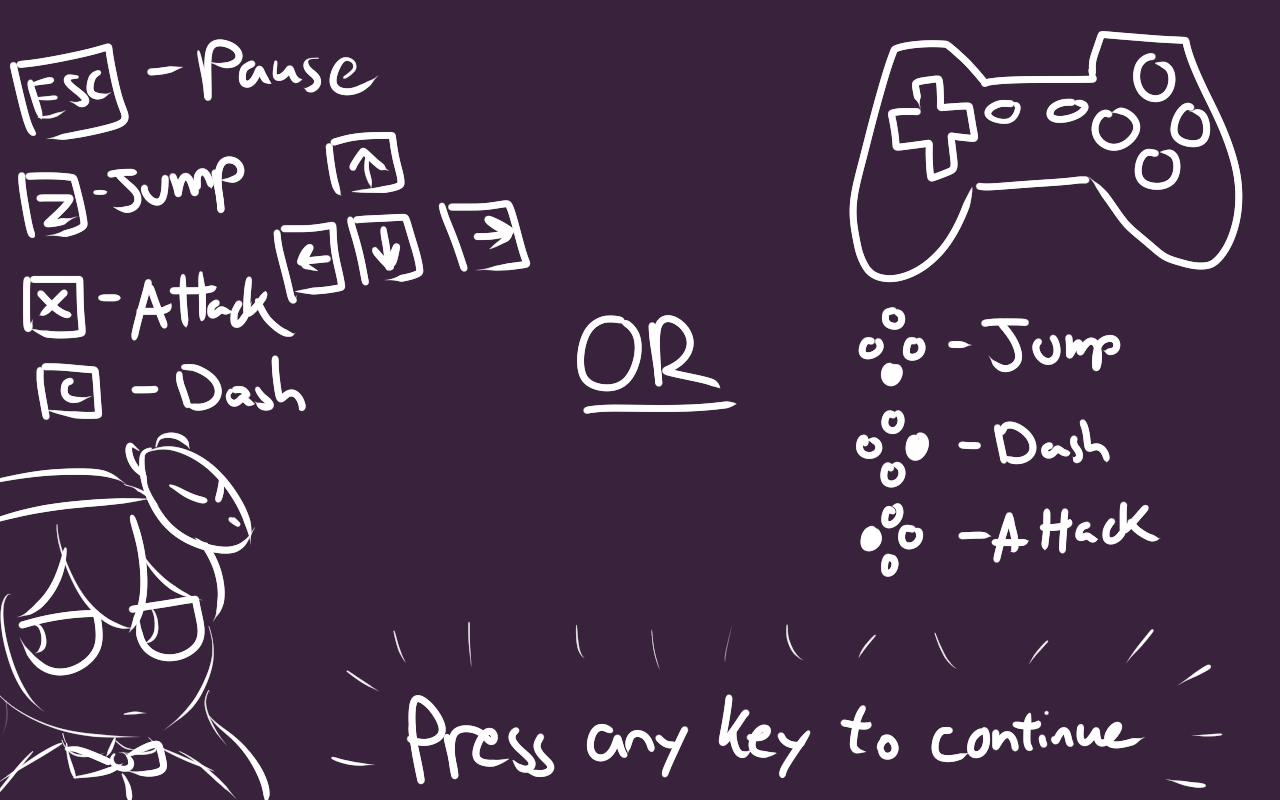 ESC - Pause
Z - Jump
X - Attack
C - Dash
OR
- Jump
- Dash
- Attack
Press any key to continue